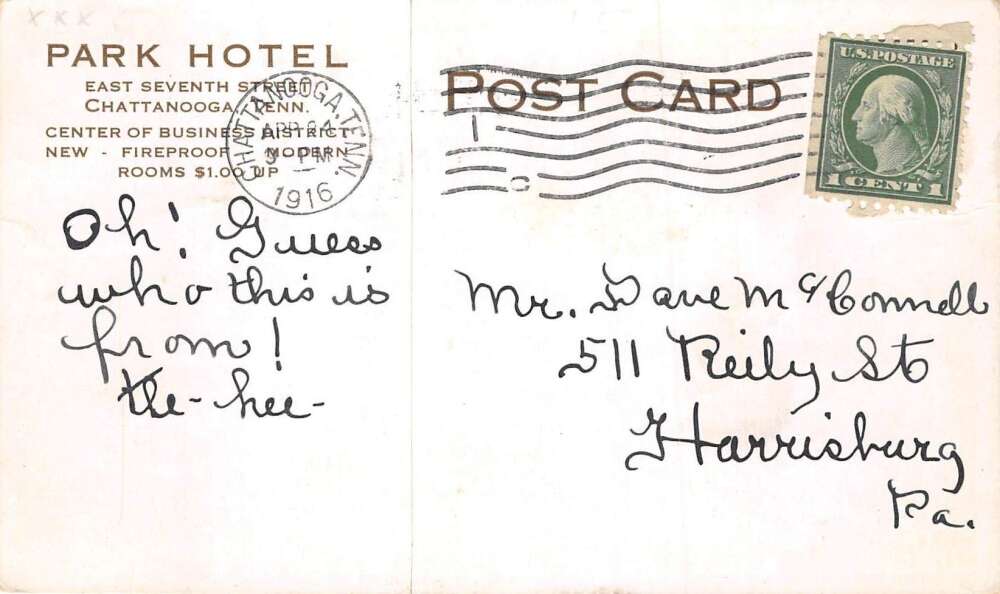 x x x
PARK HOTEL
EAST SEVENTH STREET
CHATTANOOGA, TENN.
CENTER OF BUSINESS DISTRICT
NEW - FIREPROOF - MODERN
ROOMS $1.00 UP
CHATTANOOGA, TENN.
APR
3 PM
1916
POST CARD
U.S. POSTAGE
1 CENT 1
Oh! Guess
who this is
from!
the-hee-
Mr. Dave McConnell
511 Reily St
Harrisburg
Pa.